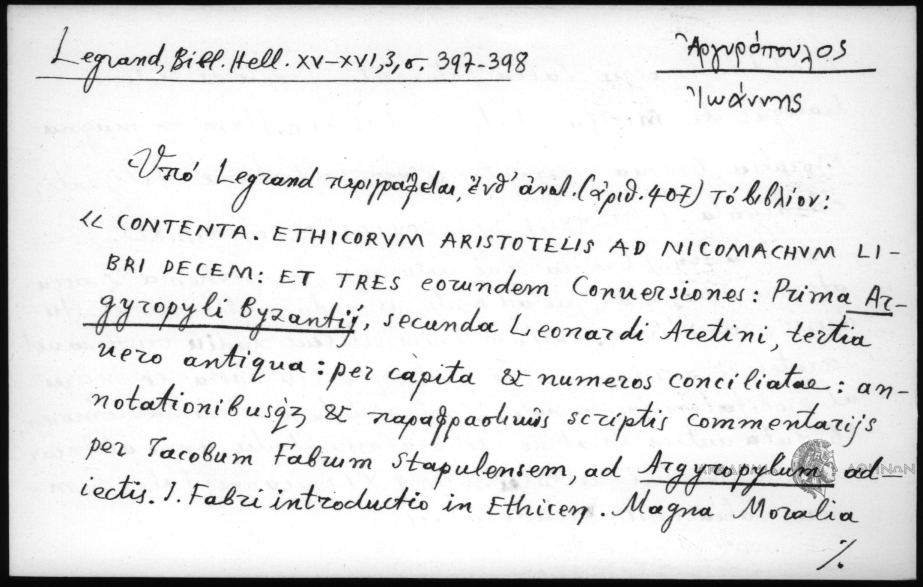 Legrand, Bibl. Hell. XV–XVI, 3, σ. 397-398
Ἀργυρόπουλος
Ἰωάννης
Ὑπό Legrand περιγράφεται, ἔνθ' ἀνωτ. (ἀριθ. 407) τό βιβλίον:
« CONTENTA. ETHICORVM ARISTOTELIS AD NICOMACHVM LI-
BRI DECEM: ET TRES eorundem Conuersiones: Prima Ar-
gyropyli Byzantij, secunda Leonardi Aretini, tertia
uero antiqua: per capita & numeros conciliatae: an-
notationibusqꝫ & παραφραστικῶς scriptis commentarijs
per Iacobum Fabrum Stapulensem, ad Argyropylum ad-
iectis. I. Fabri introductio in Ethicen. Magna Moralia
ΑΚΑΔΗΜΙΑ ΑΘΗΝΩΝ
./.